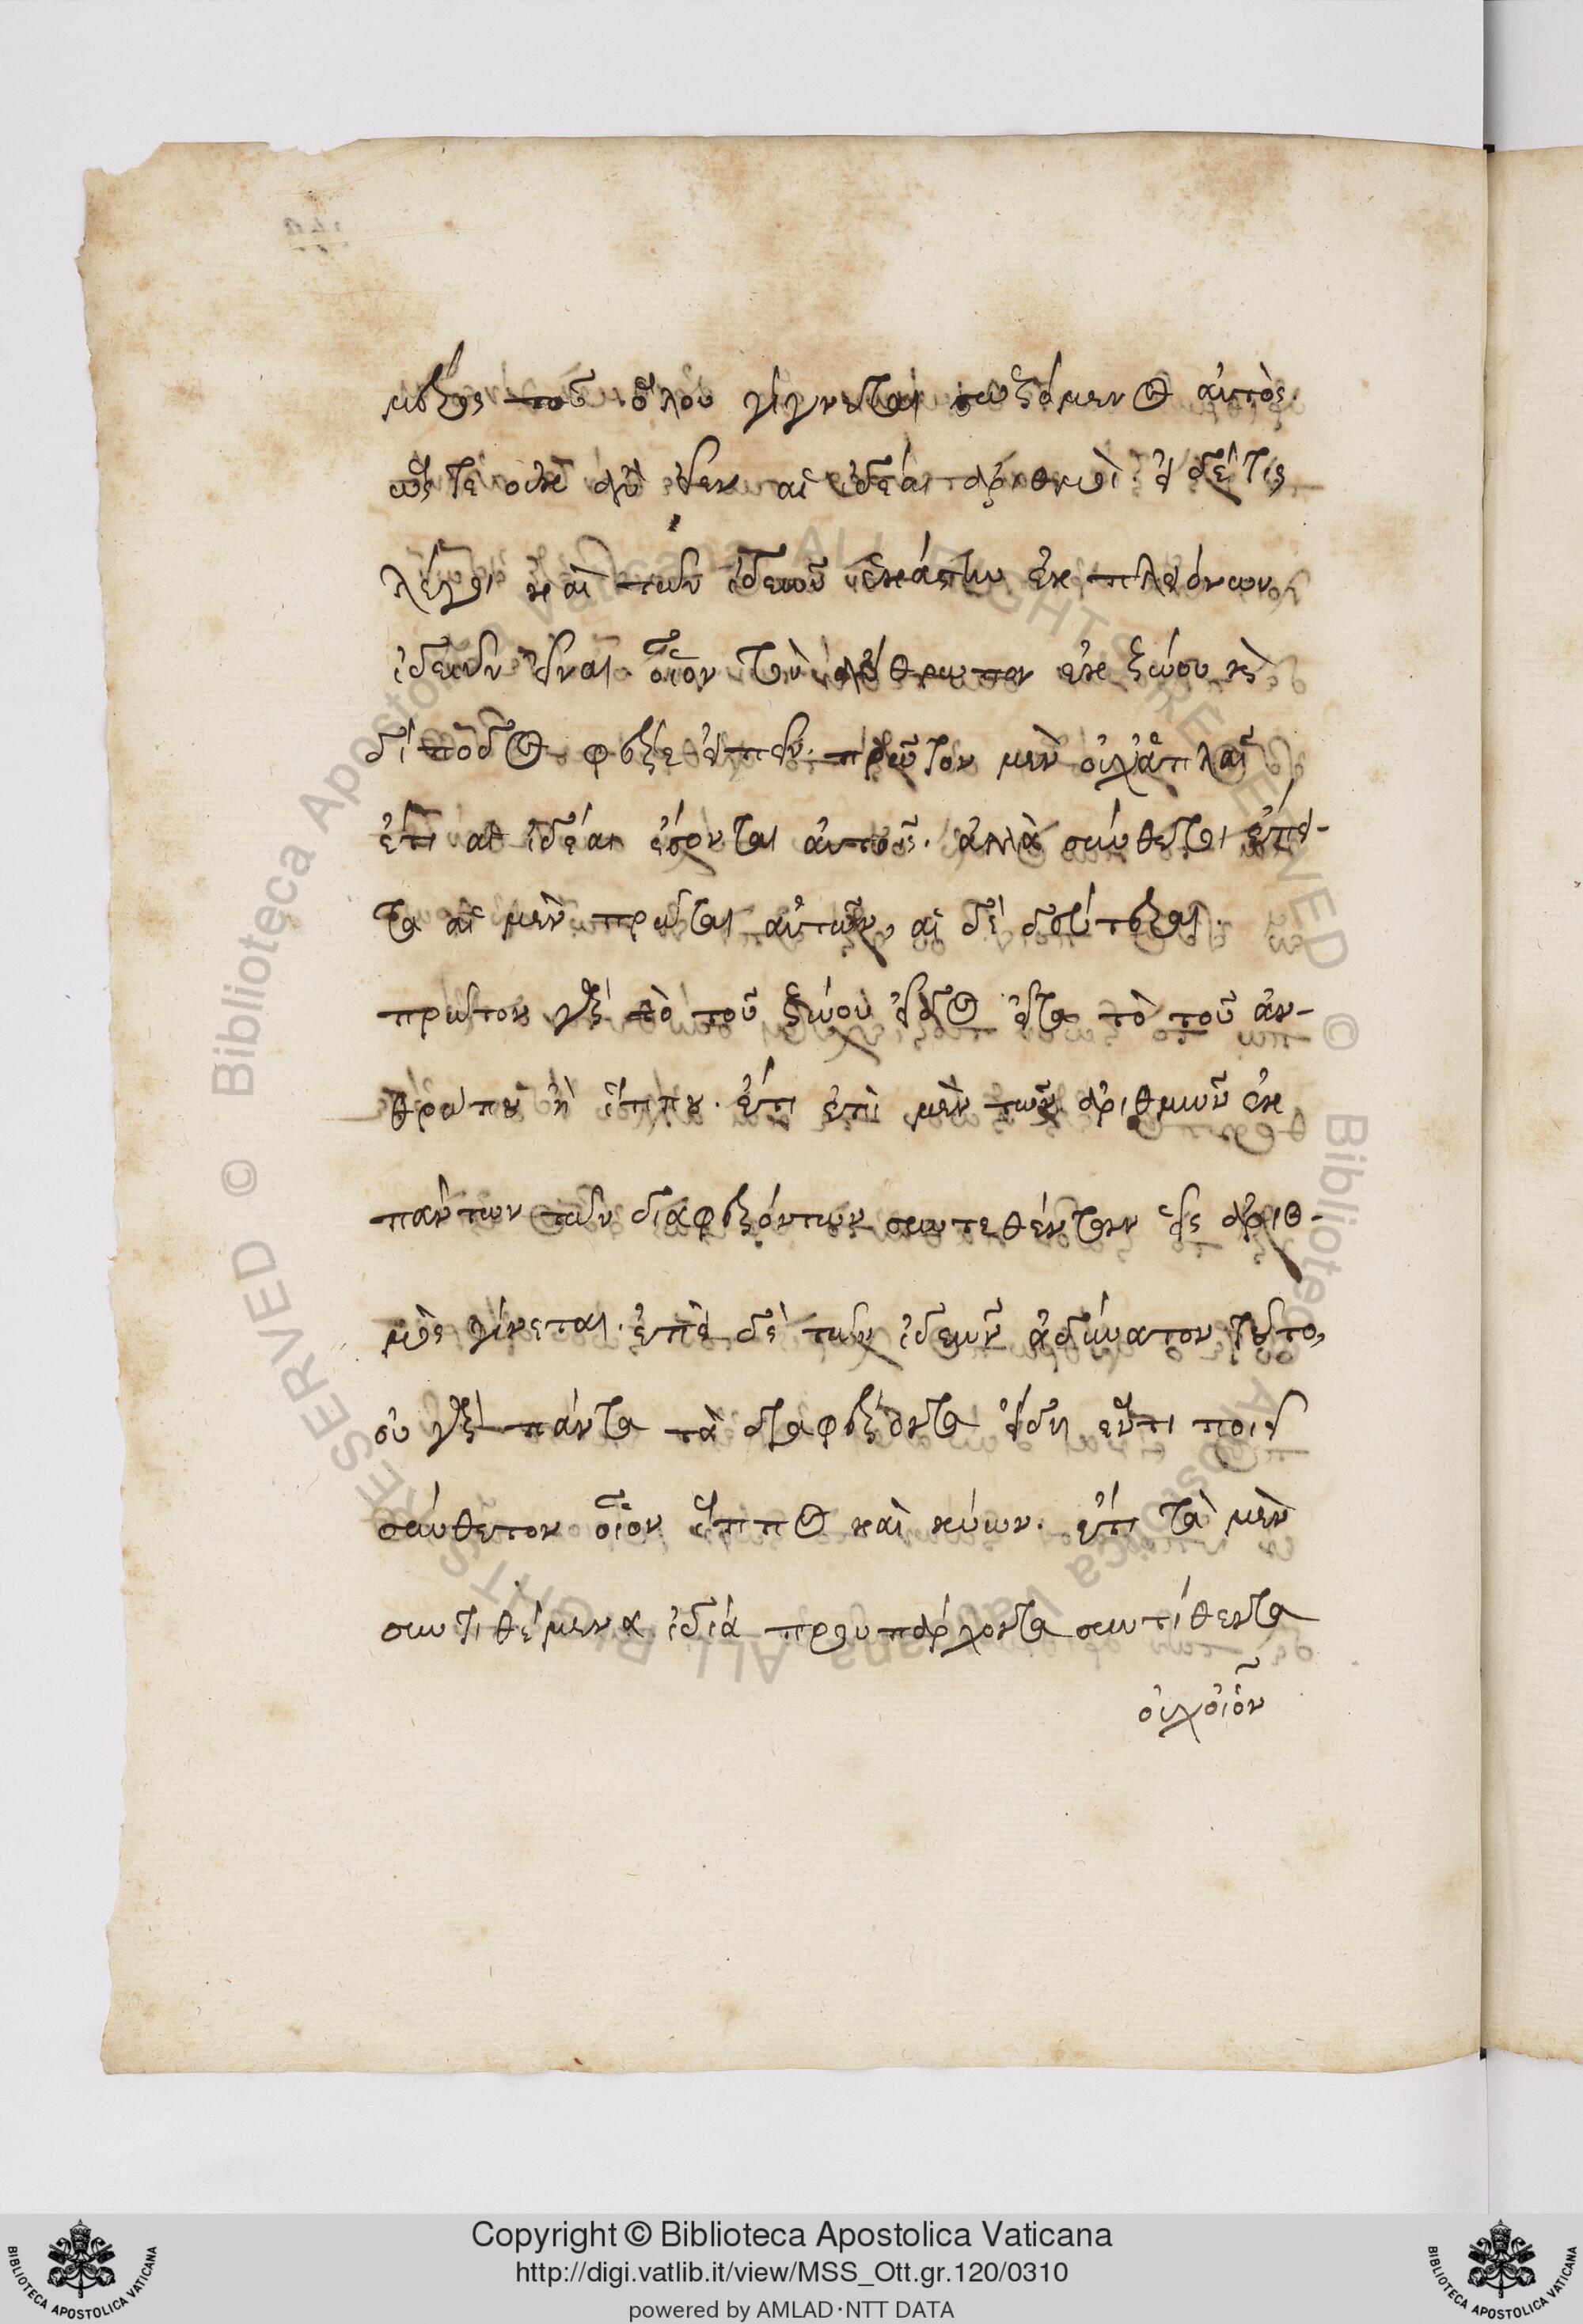 μέρος τοῦ ὅλου γίγνεται αὐξόμενος αὐτός.
ὥστε οὐκ ἂν εἶεν αἱ ἰδέαι ἀριθμοί. εἰ δέ τις
λέγει καὶ τῶν ἰδεῶν ἑκάστην ἐκ πλειόνων
ἰδεῶν εἶναι οἷον τὸν ἄνθρωπον ἐκ ζώου καὶ
δίποδος φέρε εἰπεῖν. πρῶτον μὲν οὐχ ἁπλαῖ
ἔτι αἱ ἰδέαι ἔσονται αὐτοῖς. ἀλλὰ σύνθετοι ἔπει-
τα αἱ μὲν πρῶται αὐτῶν, αἱ δὲ δεύτεραι.
πρῶτον γὰρ τὸ τοῦ ζώου εἶδος εἶτα τὸ τοῦ ἀν-
θρώπου ἢ ἵππου. ἔτι ἐπὶ μὲν τῶν ἀριθμῶν ἐκ
πάντων τῶν διαφερόντων συντεθέντων εἷς ἀριθ-
μὸς γίνεται. ἐπὶ δὲ τῶν ἰδεῶν ἀδύνατον τοῦτο,
οὐ γὰρ πάντα τὰ διαφέροντα εἴδη ἔστι ποιεῖν
σύνθετον οἷον ἵππος καὶ κύων. ἔτι τὰ μὲν
συντιθέμενα ἰδίᾳ προυπάρχοντα συντίθενται
οὐχ οἷον
Copyright © Biblioteca Apostolica Vaticana
http://digi.vatlib.it/view/MSS_Ott.gr.120/0310
powered by AMLAD·NTT DATA
BIBLIOTECA APOSTOLICA VATICANA
BIBLIOTECA APOSTOLICA VATICANA
© Biblioteca Apostolica Vaticana ALL RIGHTS RESERVED
© Biblioteca Apostolica Vaticana ALL RIGHTS RESERVED